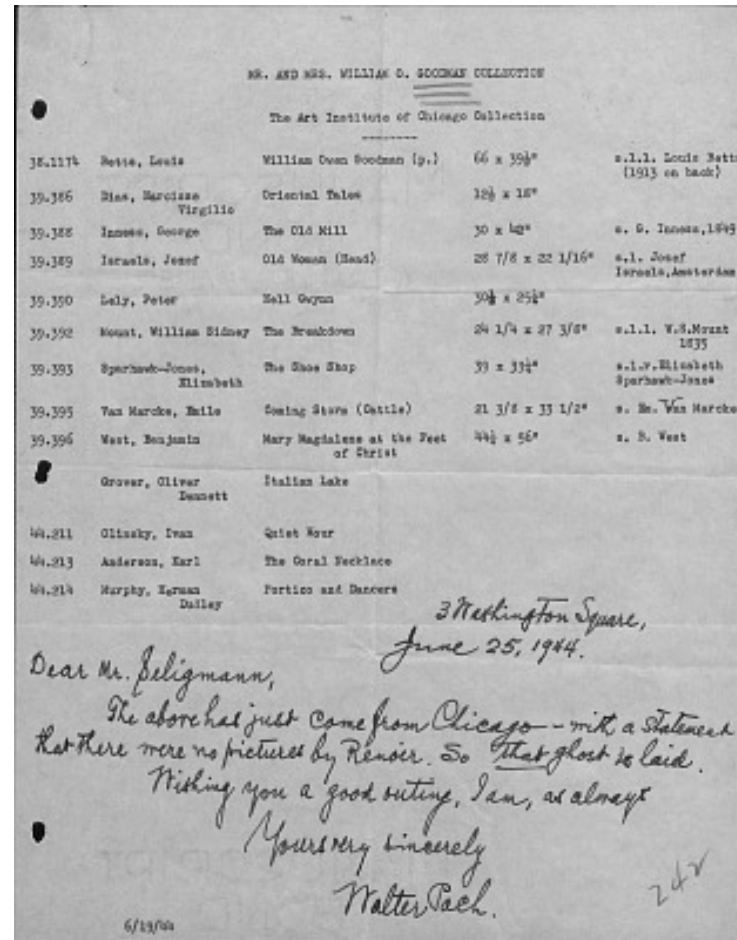 MR. AND MRS. WILLIAM O. GOODMAN COLLECTION
The Art Institute of Chicago Collection
38.1174 Betts, Louis William Owen Goodman (p.) 66 x 39½" s.l.l. Louis Betts
(1913 on back)
39.386 Diaz, Narcisse Oriental Tales 12½ x 18"
Virgilio
39.388 Inness, George The Old Mill 30 x 42" s. G. Inness, 1849
39.389 Israels, Jozef Old Woman (Head) 28 7/8 x 22 1/16" s.l. Josef
Israels, Amsterdam
39.390 Lely, Peter Nell Gwynn x
39.392 Mount, William Sidney The Breakdown 24 1/4 x 27 3/8" s.l.l. W.S.Mount
1835
39.393 Sparhawk-Jones, The Shoe Shop 39 x s.l.r. Elizabeth
Elizabeth Sparhawk-Jones
39.395 Van Marcke, Emile Coming Storm (Cattle) 21 3/8 x 33 1/2" s. Em. Van Marcke
39.396 West, Benjamin Mary Magdalene at the Feet x 56" s. B. West
of Christ
Grover, Oliver Italian Lake
Dennett
44.211 Olinsky, Ivan Quiet Hour
44.213 Anderson, Karl The Coral Necklace
44.214 Murphy, Herman Portico and Dancers
Dudley
3 Washington Square,
June 25, 1944.
Dear Mr. Seligmann,
The above has just come from Chicago – with a statement
that there were no pictures by Renoir. So that ghost is laid.
Wishing you a good outing, I am, as always
Yours very sincerely
Walter Pach.
242
6/29/44